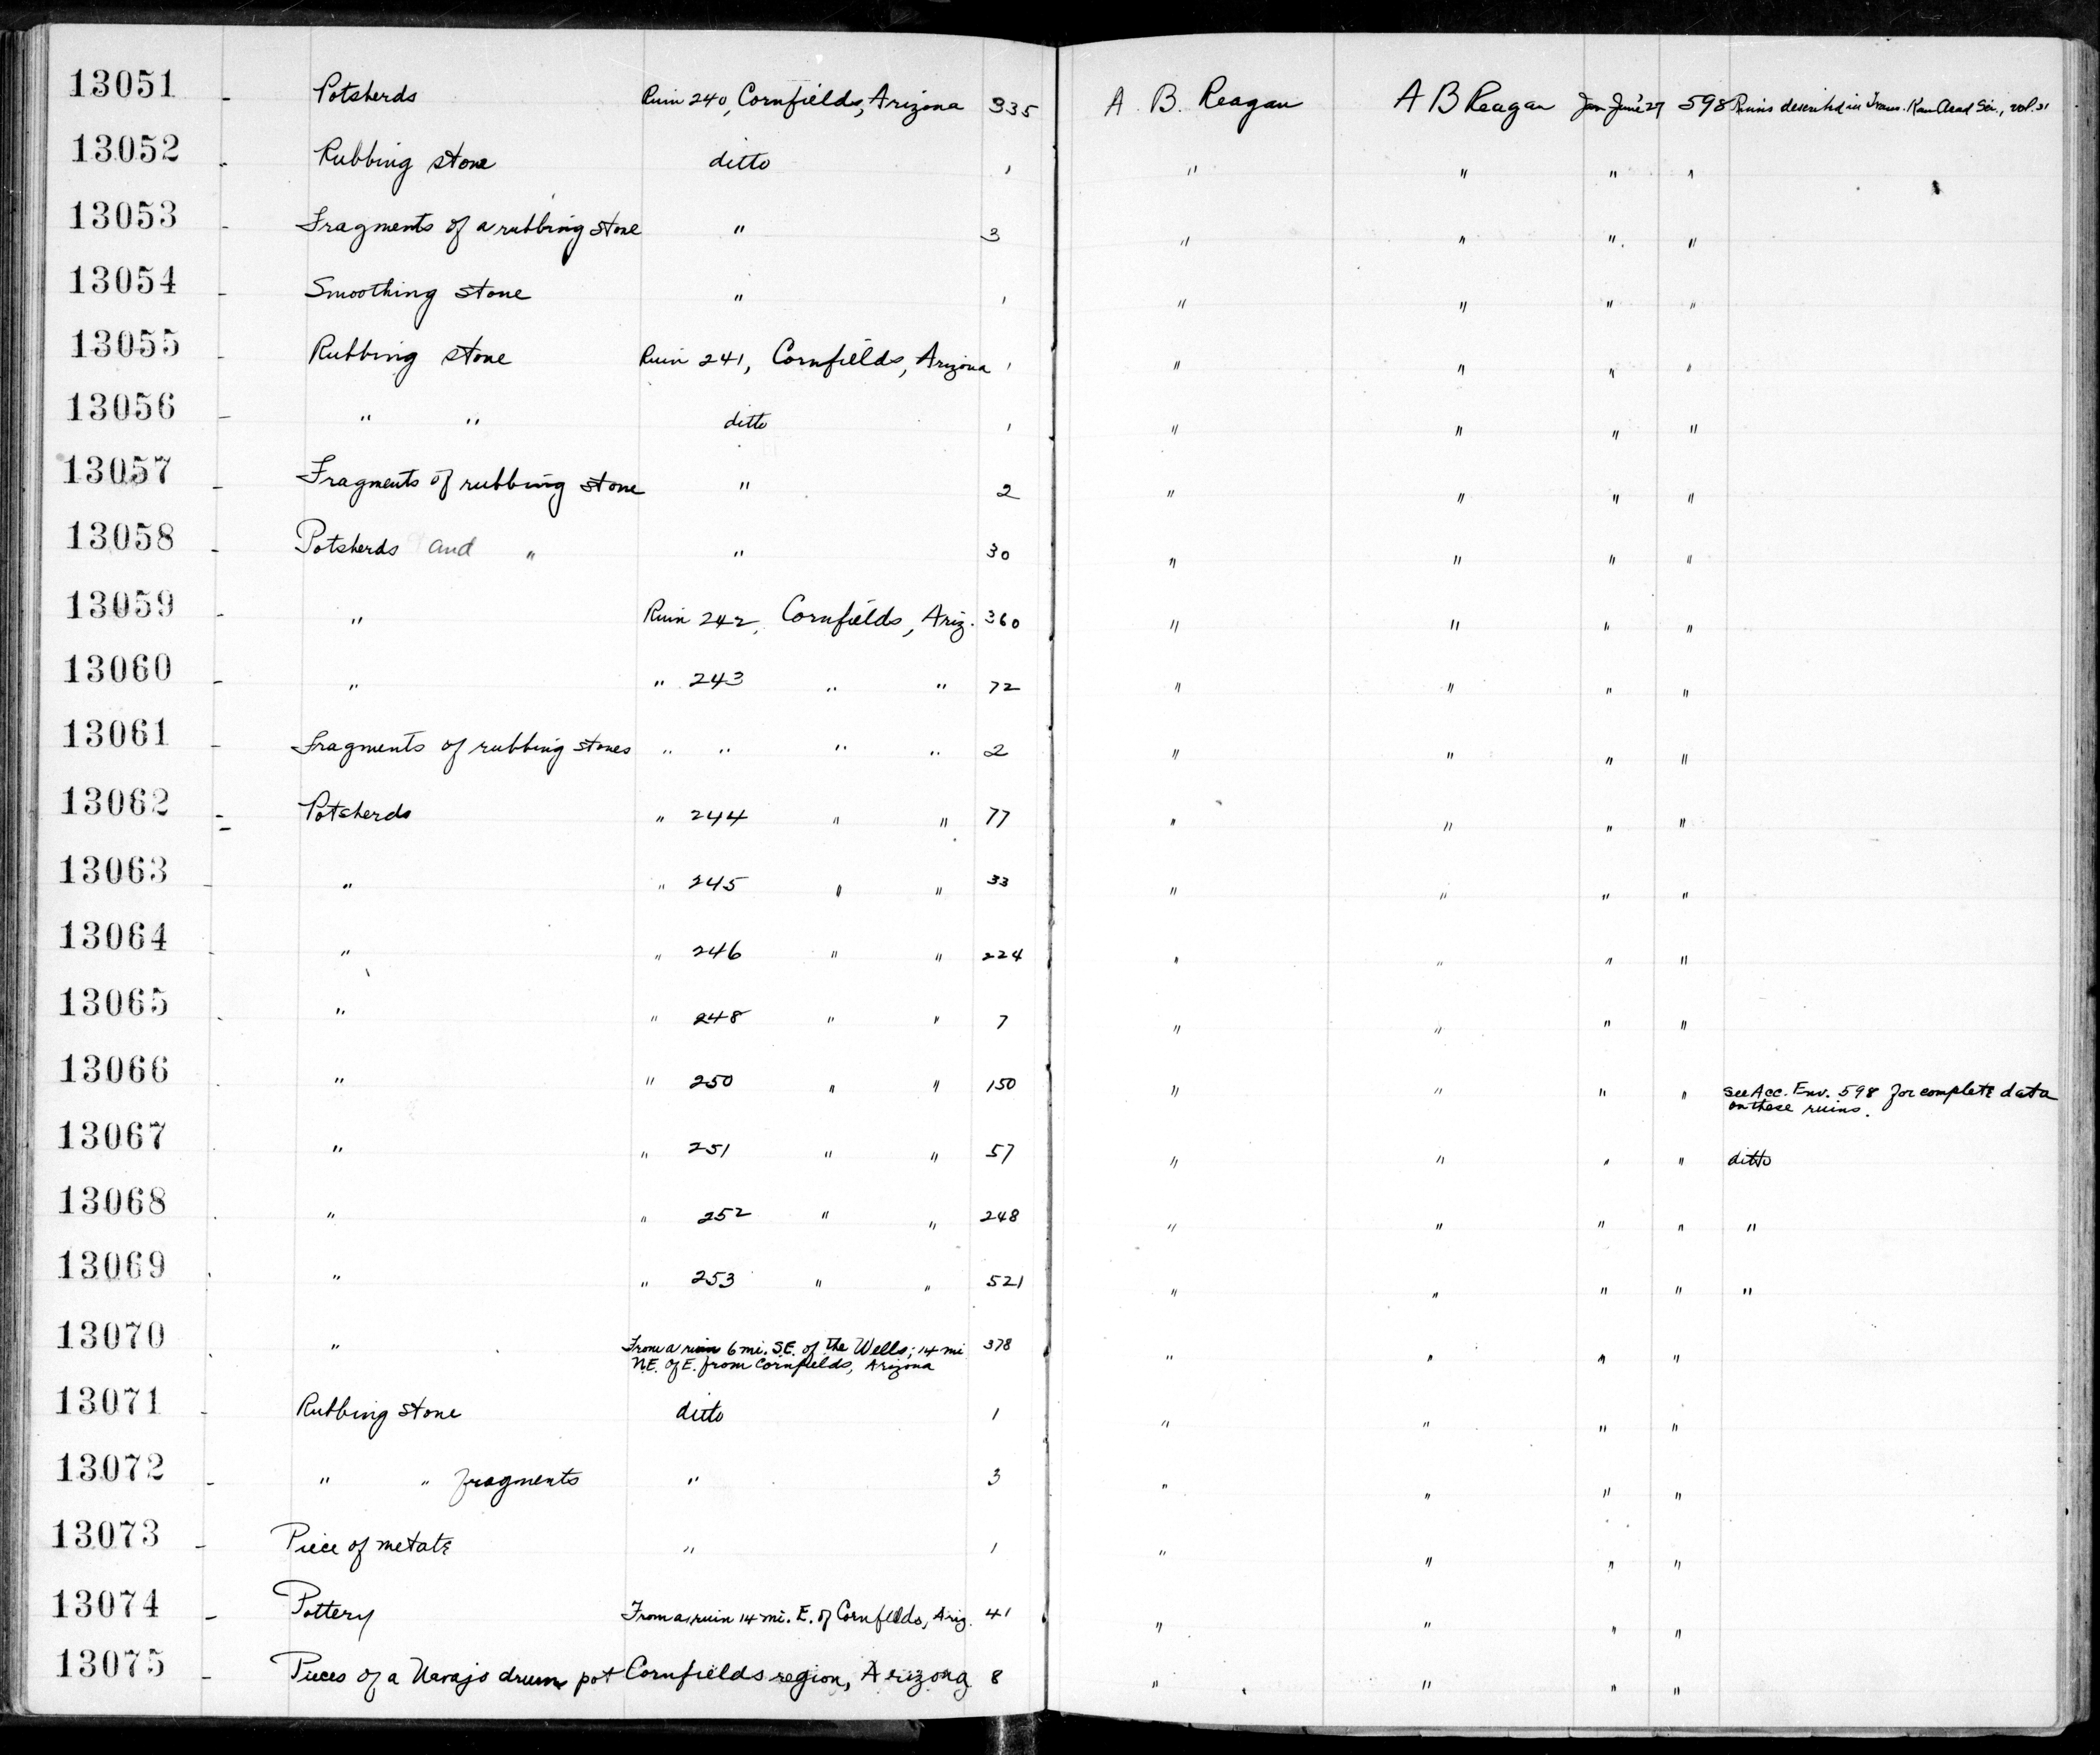 13051 - Potsherds Ruin 240, Cornfields, Arizona 335 A. B. Reagan A B Reagan Jan-June '27 598 Ruins described in Trans. Kan Acad Sci., vol. 31
13052 - Rubbing stone ditto 1 " " " "
13053 - Fragments of a rubbing stone " 3 " " " "
13054 - Smoothing stone " 1 " " " "
13055 - Rubbing stone Ruin 241, Cornfields, Arizona 1 " " " "
13056 - " " ditto 1 " " " "
13057 - Fragments of rubbing stone " 2 " " " "
13058 - Potsherds and " " 30 " " " "
13059 - " Ruin 242, Cornfields, Ariz. 360 " " " "
13060 - " " 243 " " 72 " " " "
13061 - Fragments of rubbing stones " " " " 2 " " " "
13062 - Potsherds " 244 " " 77 " " " "
13063 - " " 245 " " 33 " " " "
13064 - " " 246 " " 224 " " " "
13065 - " " 248 " " 7 " " " "
13066 - " " 250 " " 150 " " " " see Acc. Env. 598 for complete data
on these ruins.
13067 - " " 251 " " 57 " " " " ditto
13068 - " " 252 " " 248 " " " " "
13069 - " " 253 " " 521 " " " " "
13070 - " From a ruin 6 mi. S.E. of the Wells; 14 mi 378 " " " "
N.E. of E. from Cornfields, Arizona
13071 - Rubbing stone ditto 1 " " " "
13072 - " " fragments " 3 " " " "
13073 - Piece of metate " 1 " " " "
13074 - Pottery From a ruin 14 mi. E. of Cornfields, Ariz. 41 " " " "
13075 - Pieces of a Navajo drum pot Cornfields region, Arizona 8 " " " "